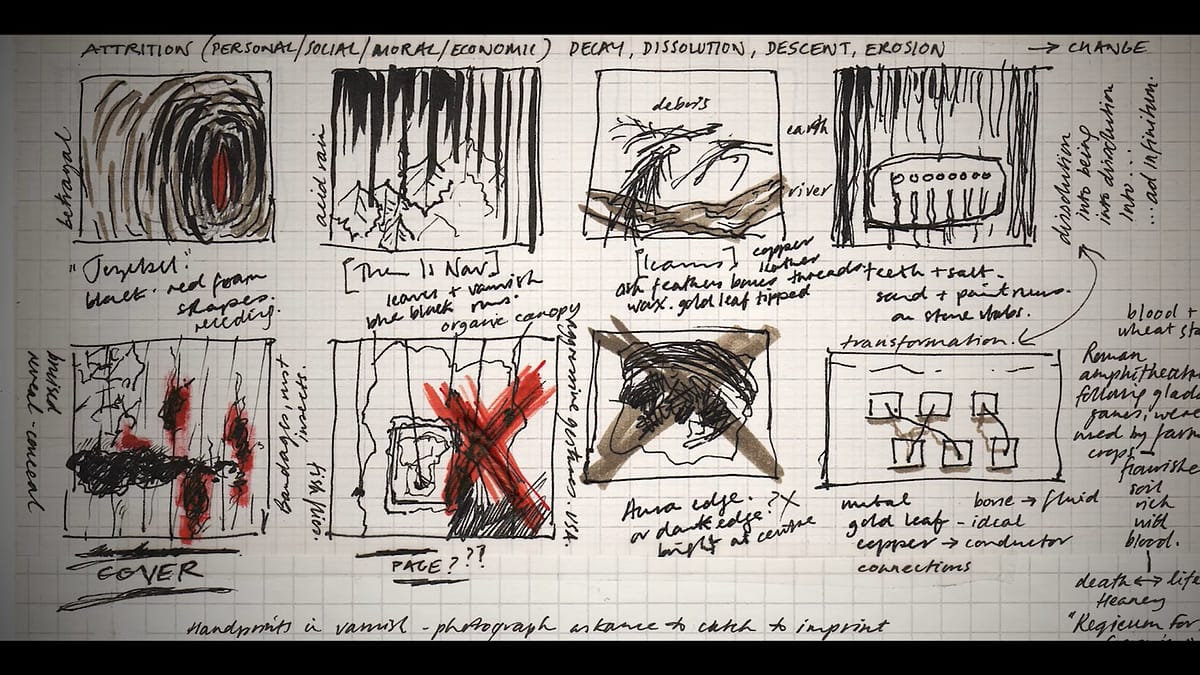 ATTRITION (PERSONAL/SOCIAL/MORAL/ECONOMIC) DECAY, DISSOLUTION, DESCENT, EROSION → CHANGE
betrayal
"Jezebel."
black. red foam
shapes.
receding.
acid rain
[Then Is Now]
leaves + varnish
blue black runs.
organic canopy
debris
earth
river
[Icarus] copper
leather
ash feathers bones threads.
wax. gold leaf tipped
teeth + salt.
sand + paint runs.
on stone slabs.
dissolution
into being
into dissolution
into ...
... ad infinitum.
bruised
numeral - comedal
COVER
Bandages, rust
insects.
PAGE???
Aura edge. ? X
or dark edge?
bright at centre
transformation.
metal bone → fluid
gold leaf - ideal
copper → conductor
connections
blood +
wheat
Roman
amphitheatre
following
games, were
used by
crops
flourished
soil
rich
with
blood.
death ↔ life
Heaney
"Requiem for
Handprints in varnish - photograph askance to catch to imprint